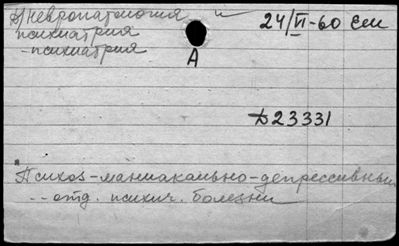 Невропатология и
24/VI-60 сем
психиатрия
-психиатрия
А
D23331
Психоз-маниакально-депрессивный
-- отд. психич. болезни